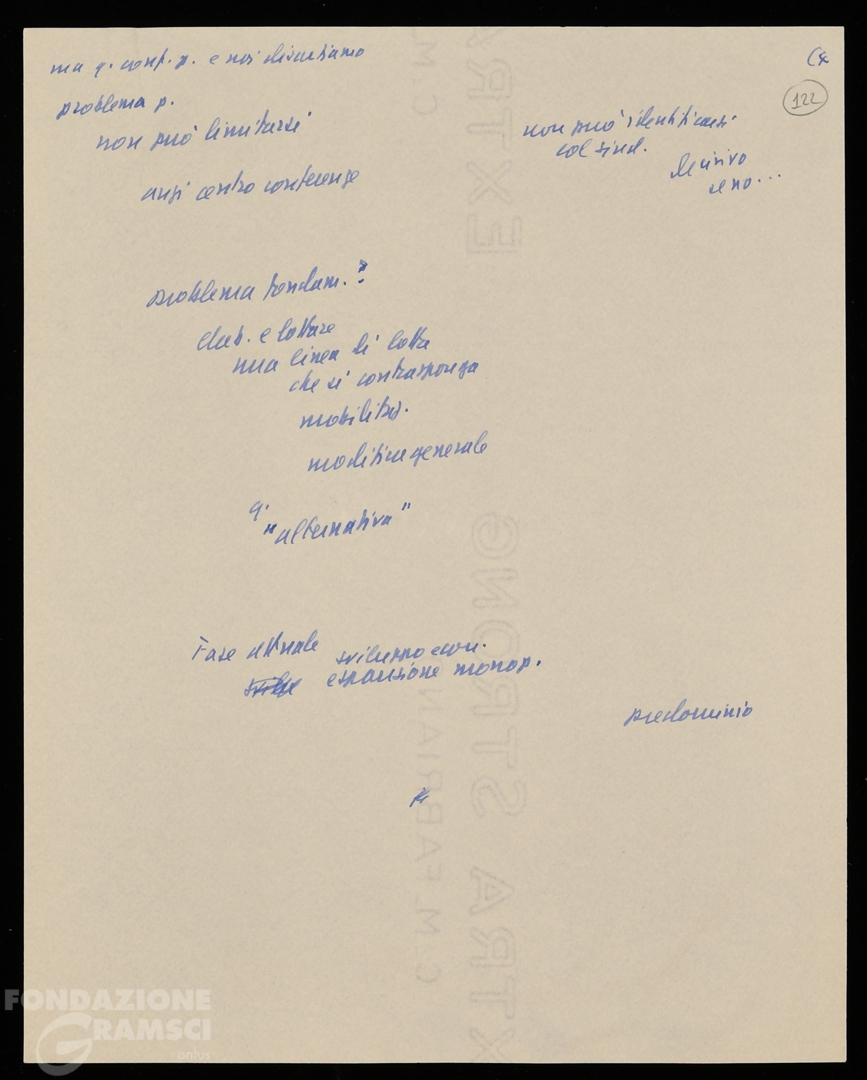 ma q. conf. p. e noi discutiamo
problema p.
non può limitarsi
anzi centro conferenze
non può identificarsi
col sind.
decisivo
se no...
problema fondam.?
elab. e lottare
una linea di lotta
che si contrapponga
mobilitaz.
modifica generale
q.
"alternativa"
Fase attuale sviluppo econ.
espansione monop.
predominio
122
C. M. FABRIANO
EXTRA STRONG
FONDAZIONE
GRAMSCI
onlus